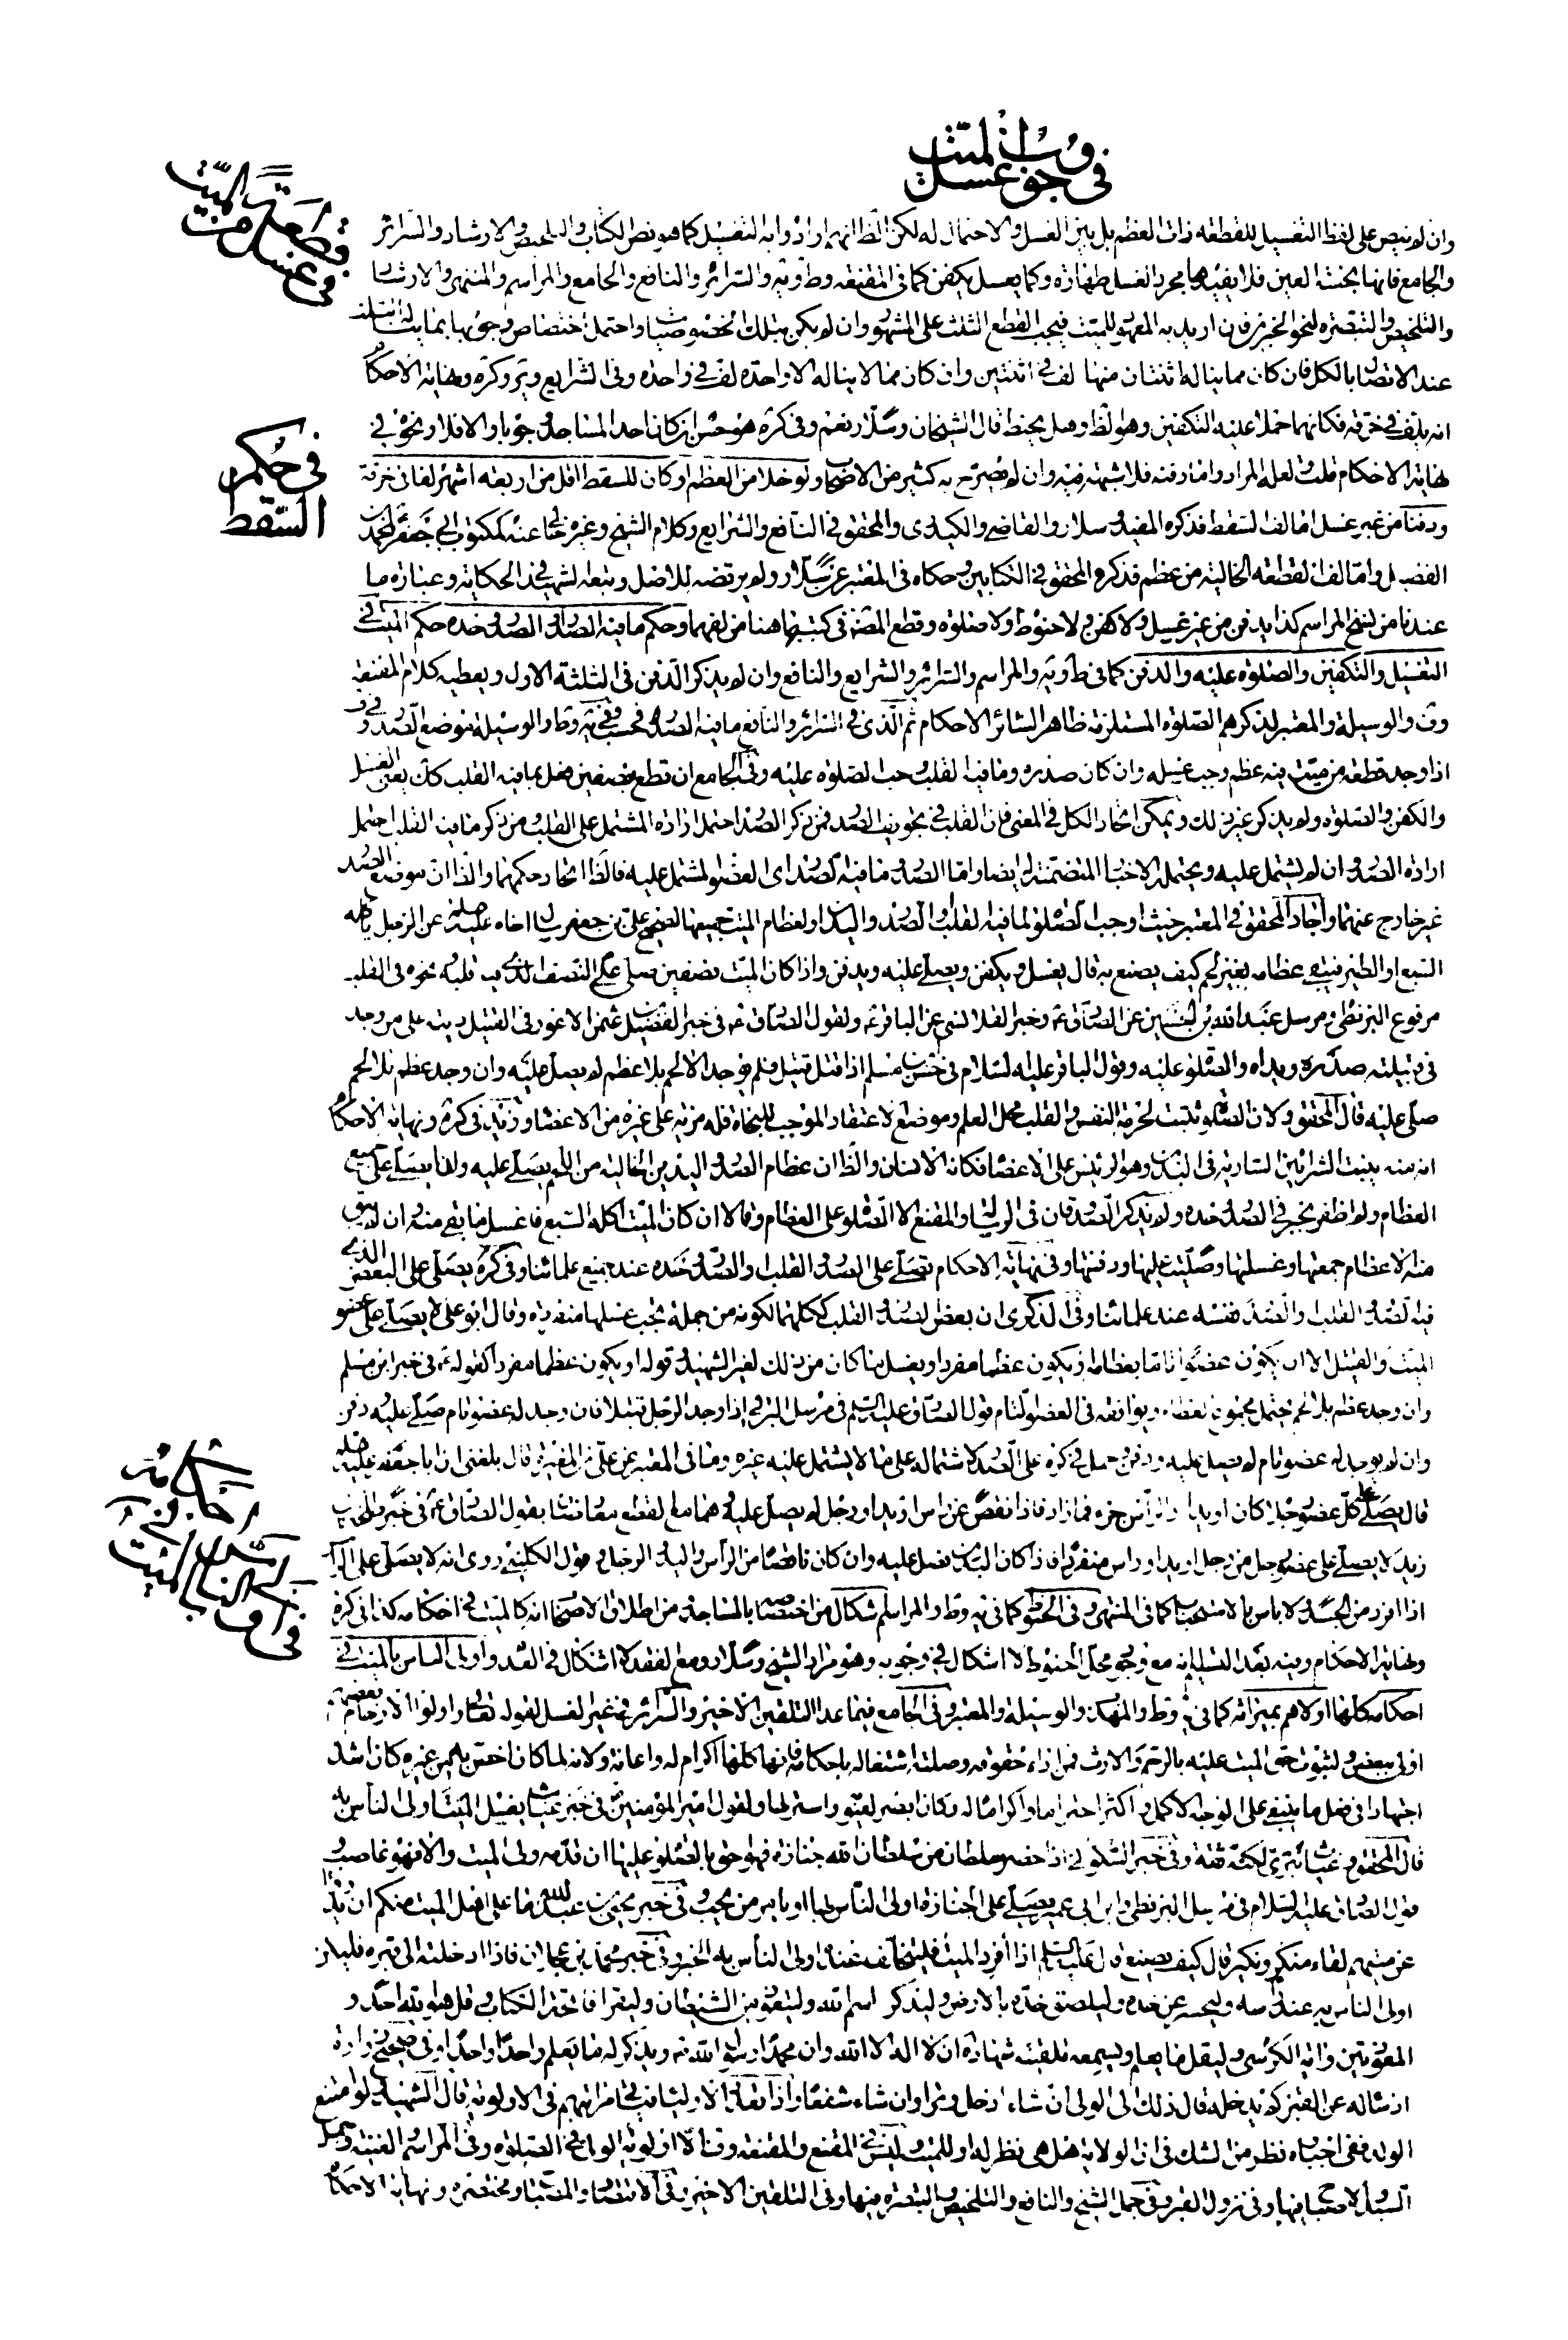 في وجوب غسل الميت
في غسل قطعة من الميت
وان لم ينص على لفظ التغسيل للقطعة ذات العظم بل بين الغسل والاحتمال له لكن الظ انهم ارادوا به التغسيل كما هو نص الكتاب والتلخيص والارشاد والسرائر
والجامع فانها نجسة العين فلا يفيدها مجرد الغسل طهارة وكما يغسل يكفن كما في المقنعة وط وية والسرائر والنافع والجامع والمراسم والمنتهى والارشاد
والتلخيص والتبصرة لنحو الخبر فان اريد به المعهود للميت فيجب القطع الثلث على المشهور وان لم يكن بتلك الخصوصيات واحتمل اختصاص وجوبها بما يناله
عند الاتصال بالكل فان كان مما يناله اثنتان منها لف في اثنتين وان كان مما لا يناله الا واحدة لف في واحدة وفي الشرايع وير وكرة ونهاية الاحكام
انه يلف في خرقة فكانهما حملا عليه التكفين وهو الظ وهل يحنط قال الشيخان وسلار نعم وفي كرة هو حسن ان كان احد المساجد وجوبا والا فلا ونحوه في
في حكم السقط
نهاية الاحكام قلت ولعله المراد واما دفنه فلا شبهة فيه وان لم يصرح به كثير من الاصحاب ولو خلا من العظم او كان للسقط اقل من اربعة اشهر لفا في خرقة
ودفنا من غير غسل اما لف السقط فذكره المفيد وسلار والقاضي والكيدري والمحقق في النافع والشرايع وكلام الشيخ وغيره خال عنه كمكتوب ابي جعفر لمحمد بن
الفضيل واما لف القطعة الخالية من عظم فذكره المحقق في الكتابين وحكاه في المعتبر عن سلار ولم يرتضه للاصل وتبعه الشهيد في الحكاية وعبارة ما
عندنا من نسخ المراسم كذا يدفن من غير غسل ولا كفن ولا حنوط ولا صلوة وقطع المصنف في كتبه بما هنا من لفهما وحكم ما فيه الصدر او الصدر وحده حكم الميت في
التغسيل والتكفين والصلوة عليه والدفن كما في ط وية والمراسم والسرائر والشرايع والنافع وان لم يذكر الدفن في الثلثة الاول ويعطيه كلام المقنعة
وف والوسيلة والمعتبر لذكرهم الصلوة المستلزمة ظاهرا لسائر الاحكام ثم الذي في السرائر والنافع ما فيه الصدر فحسب وفي ية وط والوسيلة موضع الصدر وفي ف
اذا وجد قطعة من ميت فيه عظم وجب غسله وان كان صدره وما فيه القلب وجب الصلوة عليه وفي الجامع ان قطع بنصفين فعل بما فيه القلب كك يعني الغسل
والكفن والصلوة ولم يذكر غير ذلك ويمكن اتحاد الكل في المعنى فان القلب في تجويف الصدر فمن ذكر الصدر احتمل ارادة المشتمل على القلب ومن ذكر ما فيه القلب احتمل
ارادة الصدر وان لم يشتمل عليه ويحتمله الاخبار المتضمنة له ايضا واما الصدر وما فيه الصدر اي العضو المشتمل عليه فالظ اتحاد حكمهما والظ ان موضع الصدر
غير خارج عنهما واجاد المحقق في المعتبر حيث اوجب الصلوة لما فيه القلب او الصدر واليدان او لعظام الميت جميعها لصحيح علي بن جعفر سال اخاه عليه السلام عن الرجل ياكله
السبع او الطير فيبقى عظامه بغير لحم كيف يصنع به قال يغسل ويكفن ويصلى عليه ويدفن واذا كان الميت نصفين صلى على النصف الذي فيه قلبه ونحوه في القلب
مرفوع البزنطي ومرسل عبد الله بن الحسين عن الصادق ع وخبر القلانسي عن الباقر ع ولقول الصادق ع في خبر الفضيل بن عثمن الاعور في القتيل ديته على من وجد
في قبيلته صدره ويداه والصلوة عليه وقول الباقر عليه السلام في حسن بن مسلم اذا قتل قتيل فلم يوجد الا لحم بلا عظم لم يصل عليه وان وجد عظم بلا لحم
صلى عليه قال المحقق ولان الصلوة ثبتت لحرمة النفس والقلب محل العلم وموضع الاعتقاد الموجب للنجاة فله مزية على غيره من الاعضاء وزيد في كرة ونهاية الاحكام
انه منه ينبت الشرائين السارية في البدن وهو الرئيس على الاعضاء فكانه الانسان والظ ان عظام الصدر واليدين الخالية من اللحم يصلى عليه وانما يصلى على جميع
العظام ولم اظفر بخبر في الصدر وحده ولم يذكر الصدوقان في الرسالة والمقنع الا الصلوة على العظام وقالا ان كان الميت اكله السبع فاغسل ما بقى منه وان لم يبق
منه الا عظام جمعتها وغسلتها وصليت عليها ودفنتها وفي نهاية الاحكام يصلى على الصدر والقلب او الصدر وحده عند جميع علمائنا وفي كرة يصلى على البعض الذي
فيه الصدر والقلب او الصدر نفسه عند علمائنا وفي الذكرى ان بعض الصدر والقلب ككلهما لكونه من جملة يجب غسلها منفردة وقال ابو علي لا يصلى على عضو
الميت والقتيل الا ان يكون عضوا تاما بعظامه او يكون عظما مفردا ويغسل ما كان من ذلك لغير الشهيد وقوله او يكون عظما مفردا كقوله ع في خبر ابن مسلم
وان وجد عظم بلا لحم يحتمل مجموع عظامه ويوافقه في العضو التام قول الصادق عليه السلم في مرسل البرقي اذا وجد الرجل قتيلا فان وجد له عضو تام صلى عليه ودفن
وان لم يوجد له عضو تام لم يصل عليه ودفن وحمل في كرة على الصدر لاشتماله على ما لا يشتمل عليه غيره وما في المعتبر عن علي بن المغيرة قال بلغني ان ابا جعفر عليه السلام
قال يصلى على كل عضو رجلا كان او يدا والراس جزء فما زاد فاذا نقص عن راس او يد او رجل لم يصل عليه
في احكام الميت
في ان اولى الناس بالميت
زيد لا يصلى على عضو رجل من رجل او يد او راس منفردا فاذا كان البدن فصل عليه وان كان ناقصا من الراس واليد والرجل وقول الكليني روي انه لا يصلى على الراس
اذا افرد من الجسد ولا باس بالاستحباب كما في المنتهى وفي الحنوط كما في ية وط والمراسم اشكال من اختصاصه بالمساجد ومن اطلاق الاصحاب انه كالميت في احكامه كذا في كرة
ونهاية الاحكام وفيه بعد التسليم انه مع وجود محل الحنوط لا اشكال في وجوبه وهو مراد الشيخ وسلار ومع الفقد لا اشكال في العدم واولى الناس بالميت في
احكامه كلها اولاهم بميراثه كما في ية وط والمهذب والوسيلة والمعتبر وفي الجامع فيما عدا التلقين الاخير والسرائر في غير الغسل لقوله تعالى واولوا الارحام بعضهم
اولى ببعض ولثبوت حق الميت عليه بالرحم والارث فمن اداء حقوقه وصلته اشتغاله باحكامه فانها كلها اكرام له واعانة ولانه لما كان اخص به من غيره كان اشد
اجتهادا في فعل ما ينبغي على الوجه الاكمل واكثر احتراما واكراما له وكان ابصر لعيوبه واستر لها ولقول امير المؤمنين ع في خبر غياث يغسل الميت اولى الناس به
قال المحقق وغياث بتري لكنه ثقة وفي خبر السكوني اذا حضر سلطان من سلطان الله جنازة فهو احق بالصلوة عليها ان قدمه ولي الميت والا فهو غاصب و
قول الصادق عليه السلام في مرسل البزنطي وابن ابي عمير يصلى على الجنازة اولى الناس بها او يامر من يحب وفي خبر يحيى بن عبد الله ما على اهل الميت منكم ان يدرؤا
عن ميتهم لقاء منكر ونكير قال كيف يصنع قال عليه السلم اذا افرد الميت فليتخلف عنده اولى الناس به الخبر وفي خبر محمد بن عجلان فاذا ادخلته الى قبره فليكن
اولى الناس به عند راسه وليحسر عن خده وليلصق خده بالارض وليذكر اسم الله وليتعوذ من الشيطان وليقرا فاتحة الكتاب وقل هو الله احد و
المعوذتين واية الكرسي وليقل ما يعلم ويسمعه تلقينه شهادة ان لا اله الا الله وان محمدا رسول الله ص ويذكر له ما يعلم واحدا واحدا وفي صحيح زرارة
اذ ساله عن القبر كم يدخله قال ذلك الى الولي ان شاء ادخل وترا وان شاء شفعا واذا تعذر الاولياء في مراتبهم في الاولوية قال الشهيد ولو امتنع
الولي ففي اجباره نظر من الشك في ان الولاية هل هي نظر له او للميت وليس في المقنع والمقنعة وف الا اولوية الولي في الصلوة وفي المراسم والغنية وجمل
السيد والاصباح فيها وفي نزول القبر وفي جمل الشيخ والنافع والتلخيص والتبصرة فيها وفي التلقين الاخير وفي الاقتصاد والمصباح ومختصره ونهاية الاحكام